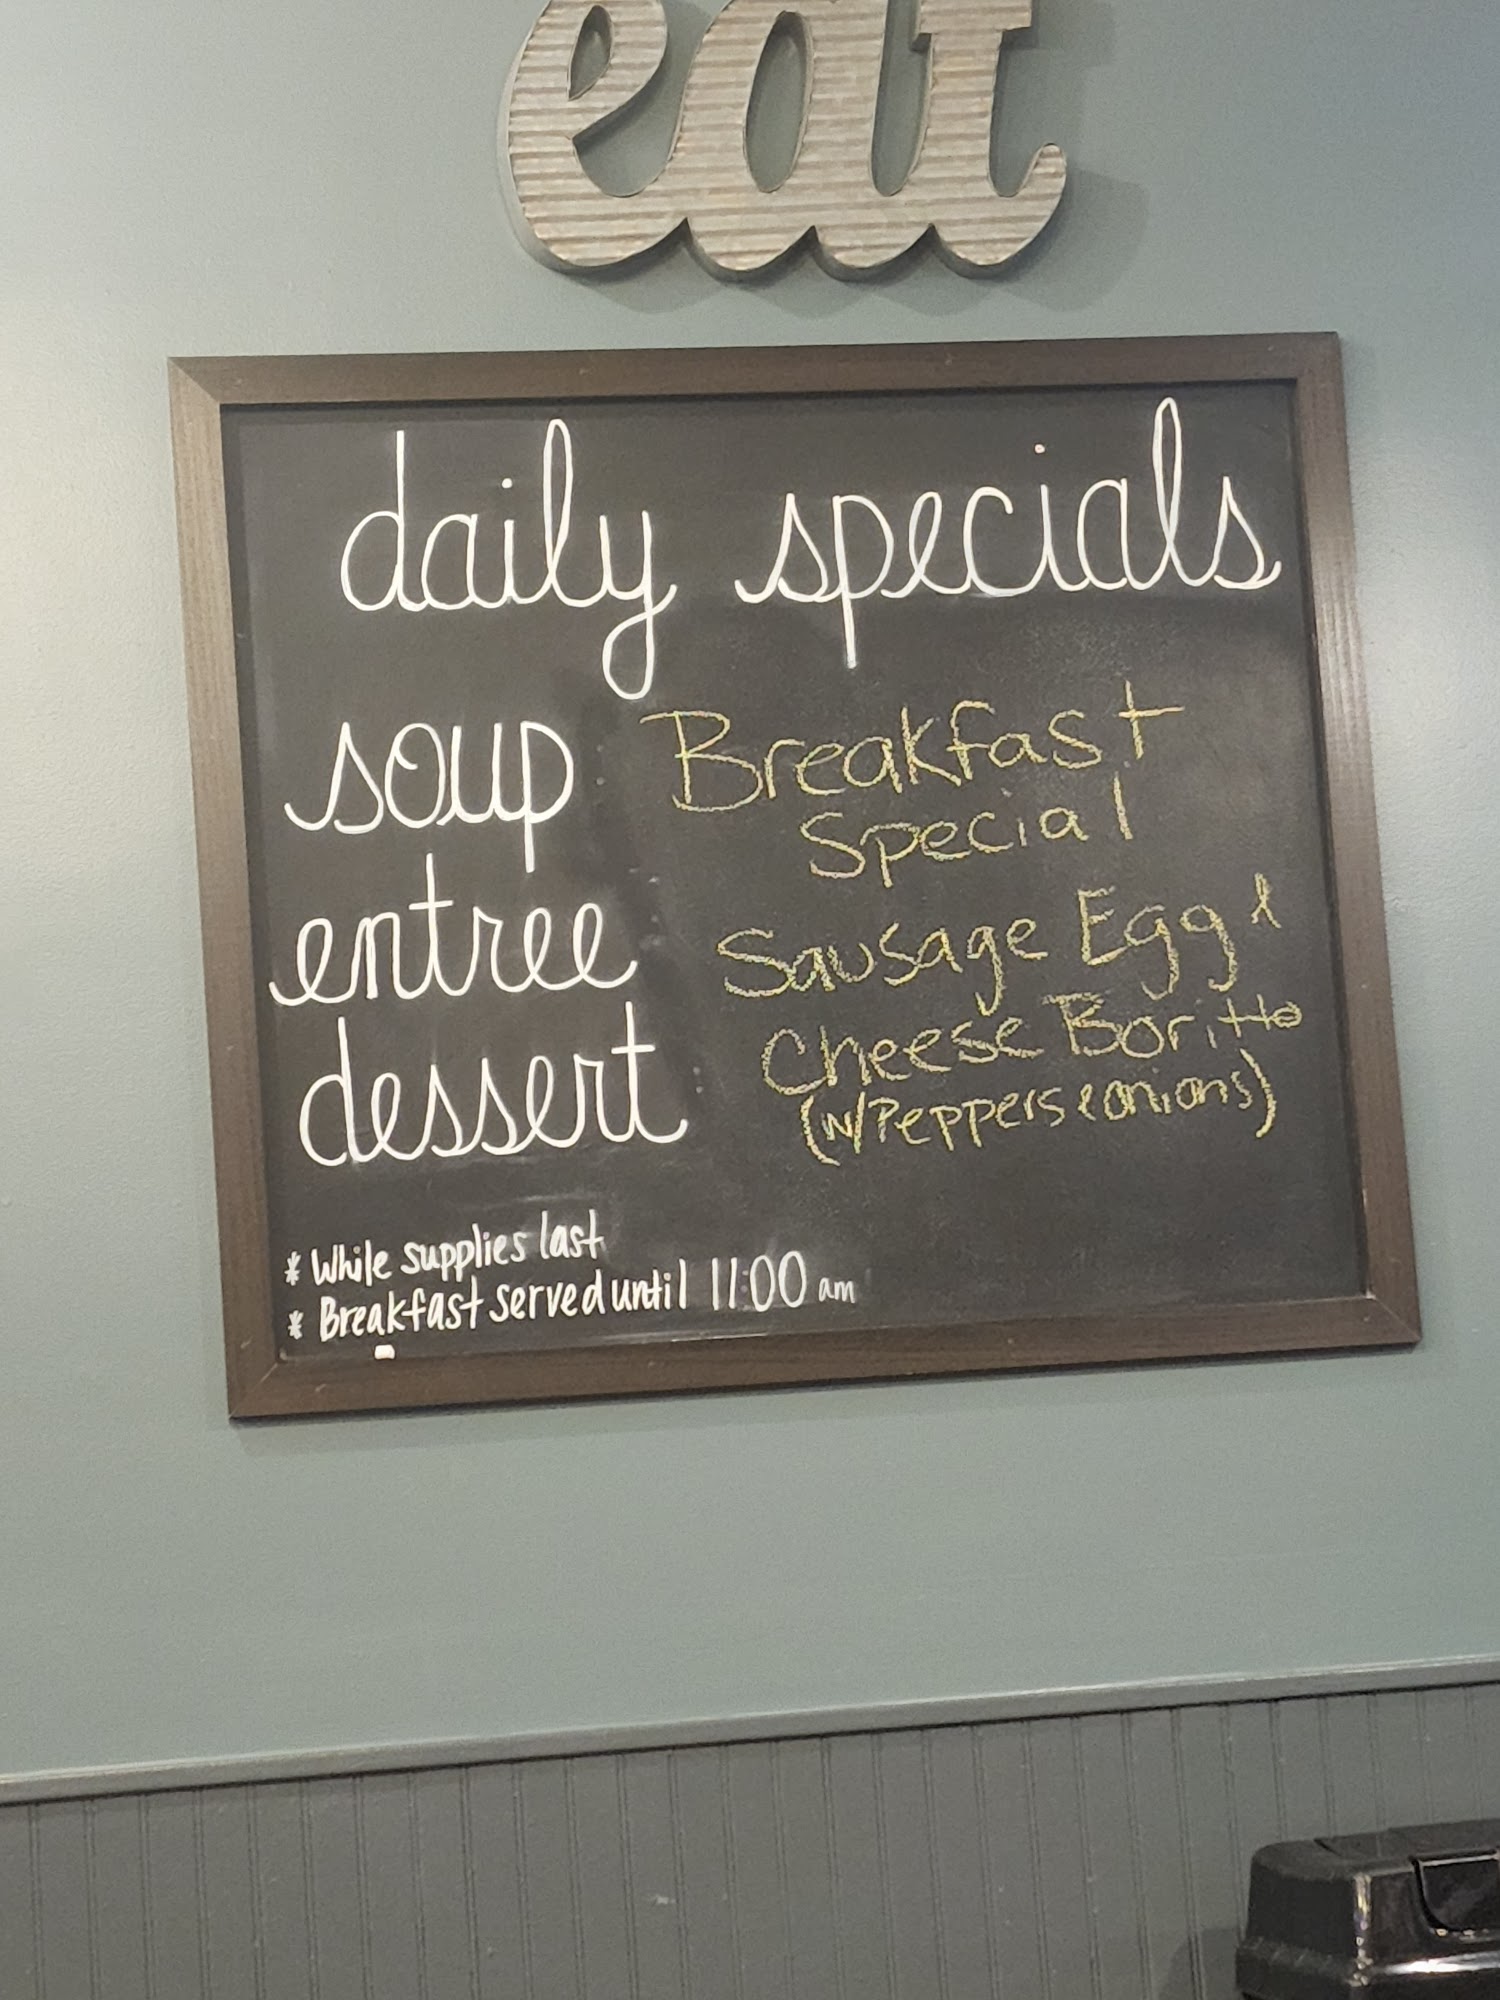 eat
daily specials
soup
Breakfast
Special
entree
Sausage Egg &
Cheese Boritto
dessert
(w/Peppers & onions)
* While supplies last
* Breakfast served until 11:00 am